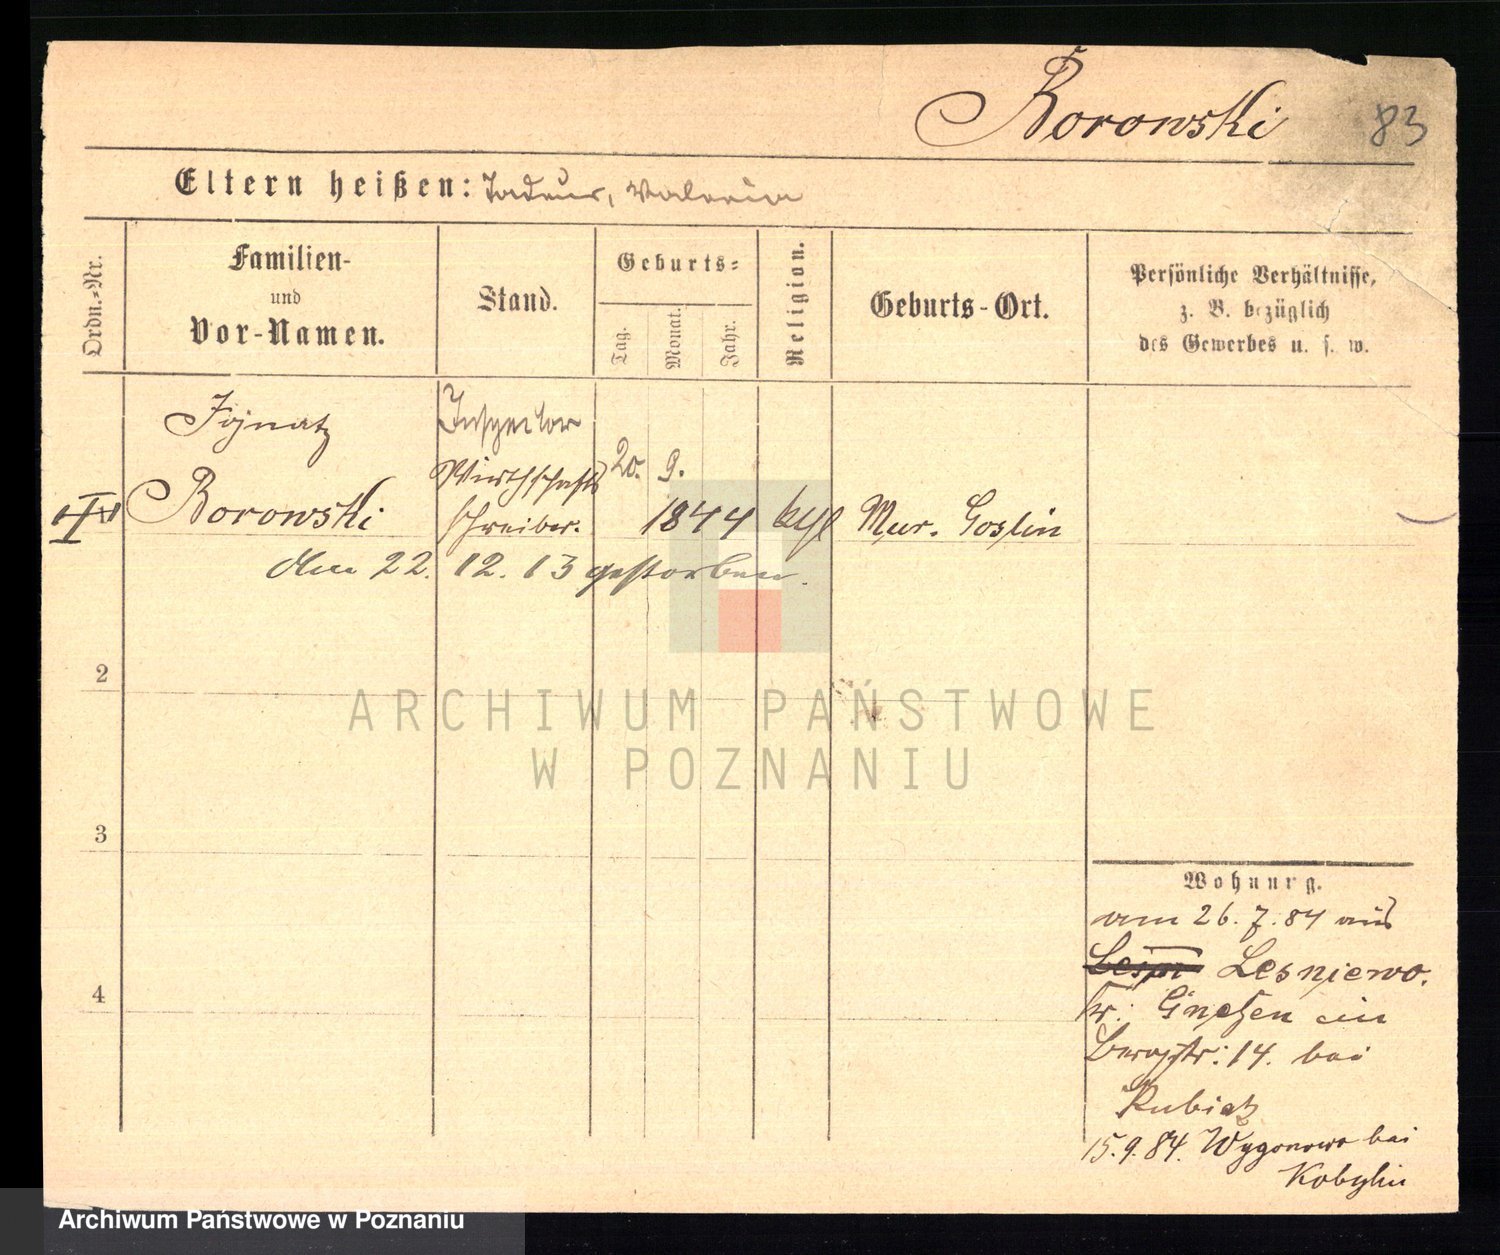 Borowski 83
Eltern heißen: Tadeus, Valeria
Ordn.-Nr.
Familien-
und
Vor-Namen.
Stand.
Geburts-
Tag.
Monat.
Jahr.
Religion.
Geburts-Ort.
Persönliche Verhältnisse,
z. B. bezüglich
des Gewerbes u. s. w.
Ignatz
Borowski
Inspector
Wirthschafts
schreiber.
20. 9.
1844
kath
Mur. Goslin
den 22. 12. 13 gestorben.
2
3
4
Wohnung.
am 26. 7. 84 aus
Lesniewo.
Kr. Gnesen in
Bergstr: 14. bei
Kubiak
15.9.84. Wygonowo bei
Kobylin
ARCHIWUM PAŃSTWOWE
W POZNANIU
Archiwum Państwowe w Poznaniu